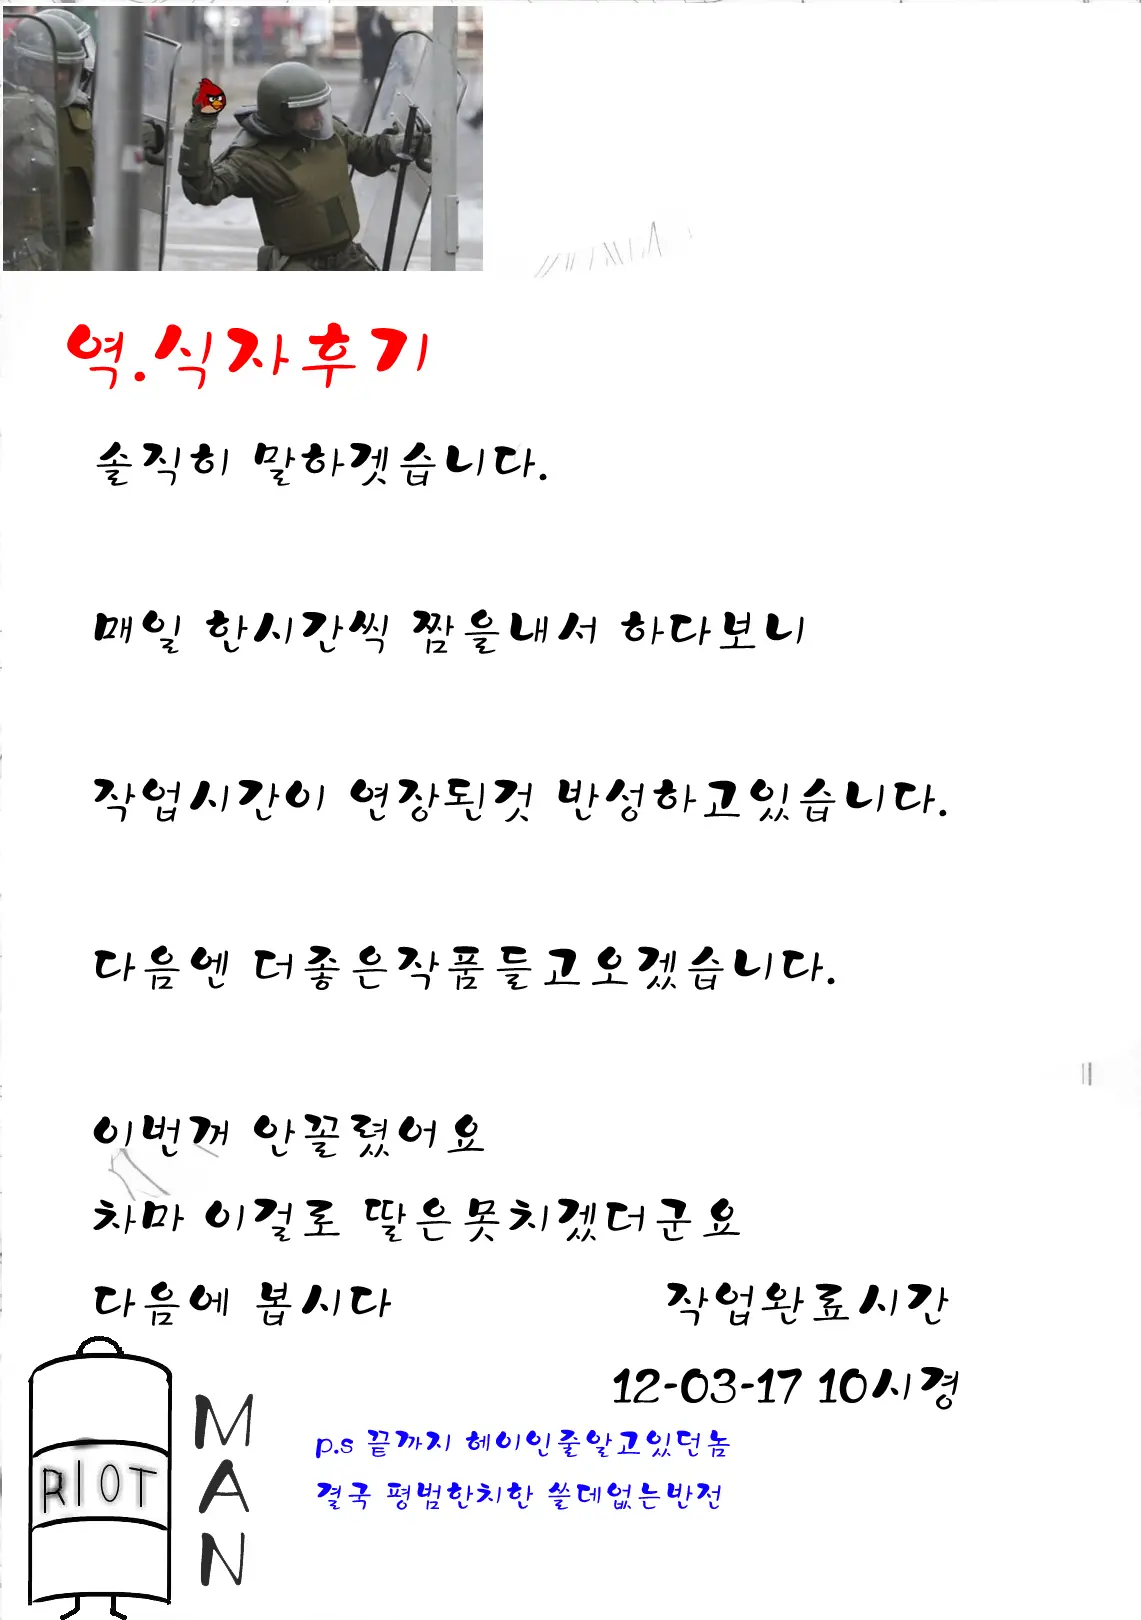 역.식자후기
솔직히 말하겟습니다.
매일 한시간씩 짬을내서 하다보니
작업시간이 연장된것 반성하고있습니다.
다음엔 더좋은작품들고오겠습니다.
이번꺼 안꼴렸어요
차마 이걸로 딸은못치겠더군요
다음에 봅시다
작업완료시간
12-03-17 10시경
p.s 끝까지 헤이인줄알고있던놈
결국 평범한치한 쓸데없는반전
RIOT
MAN